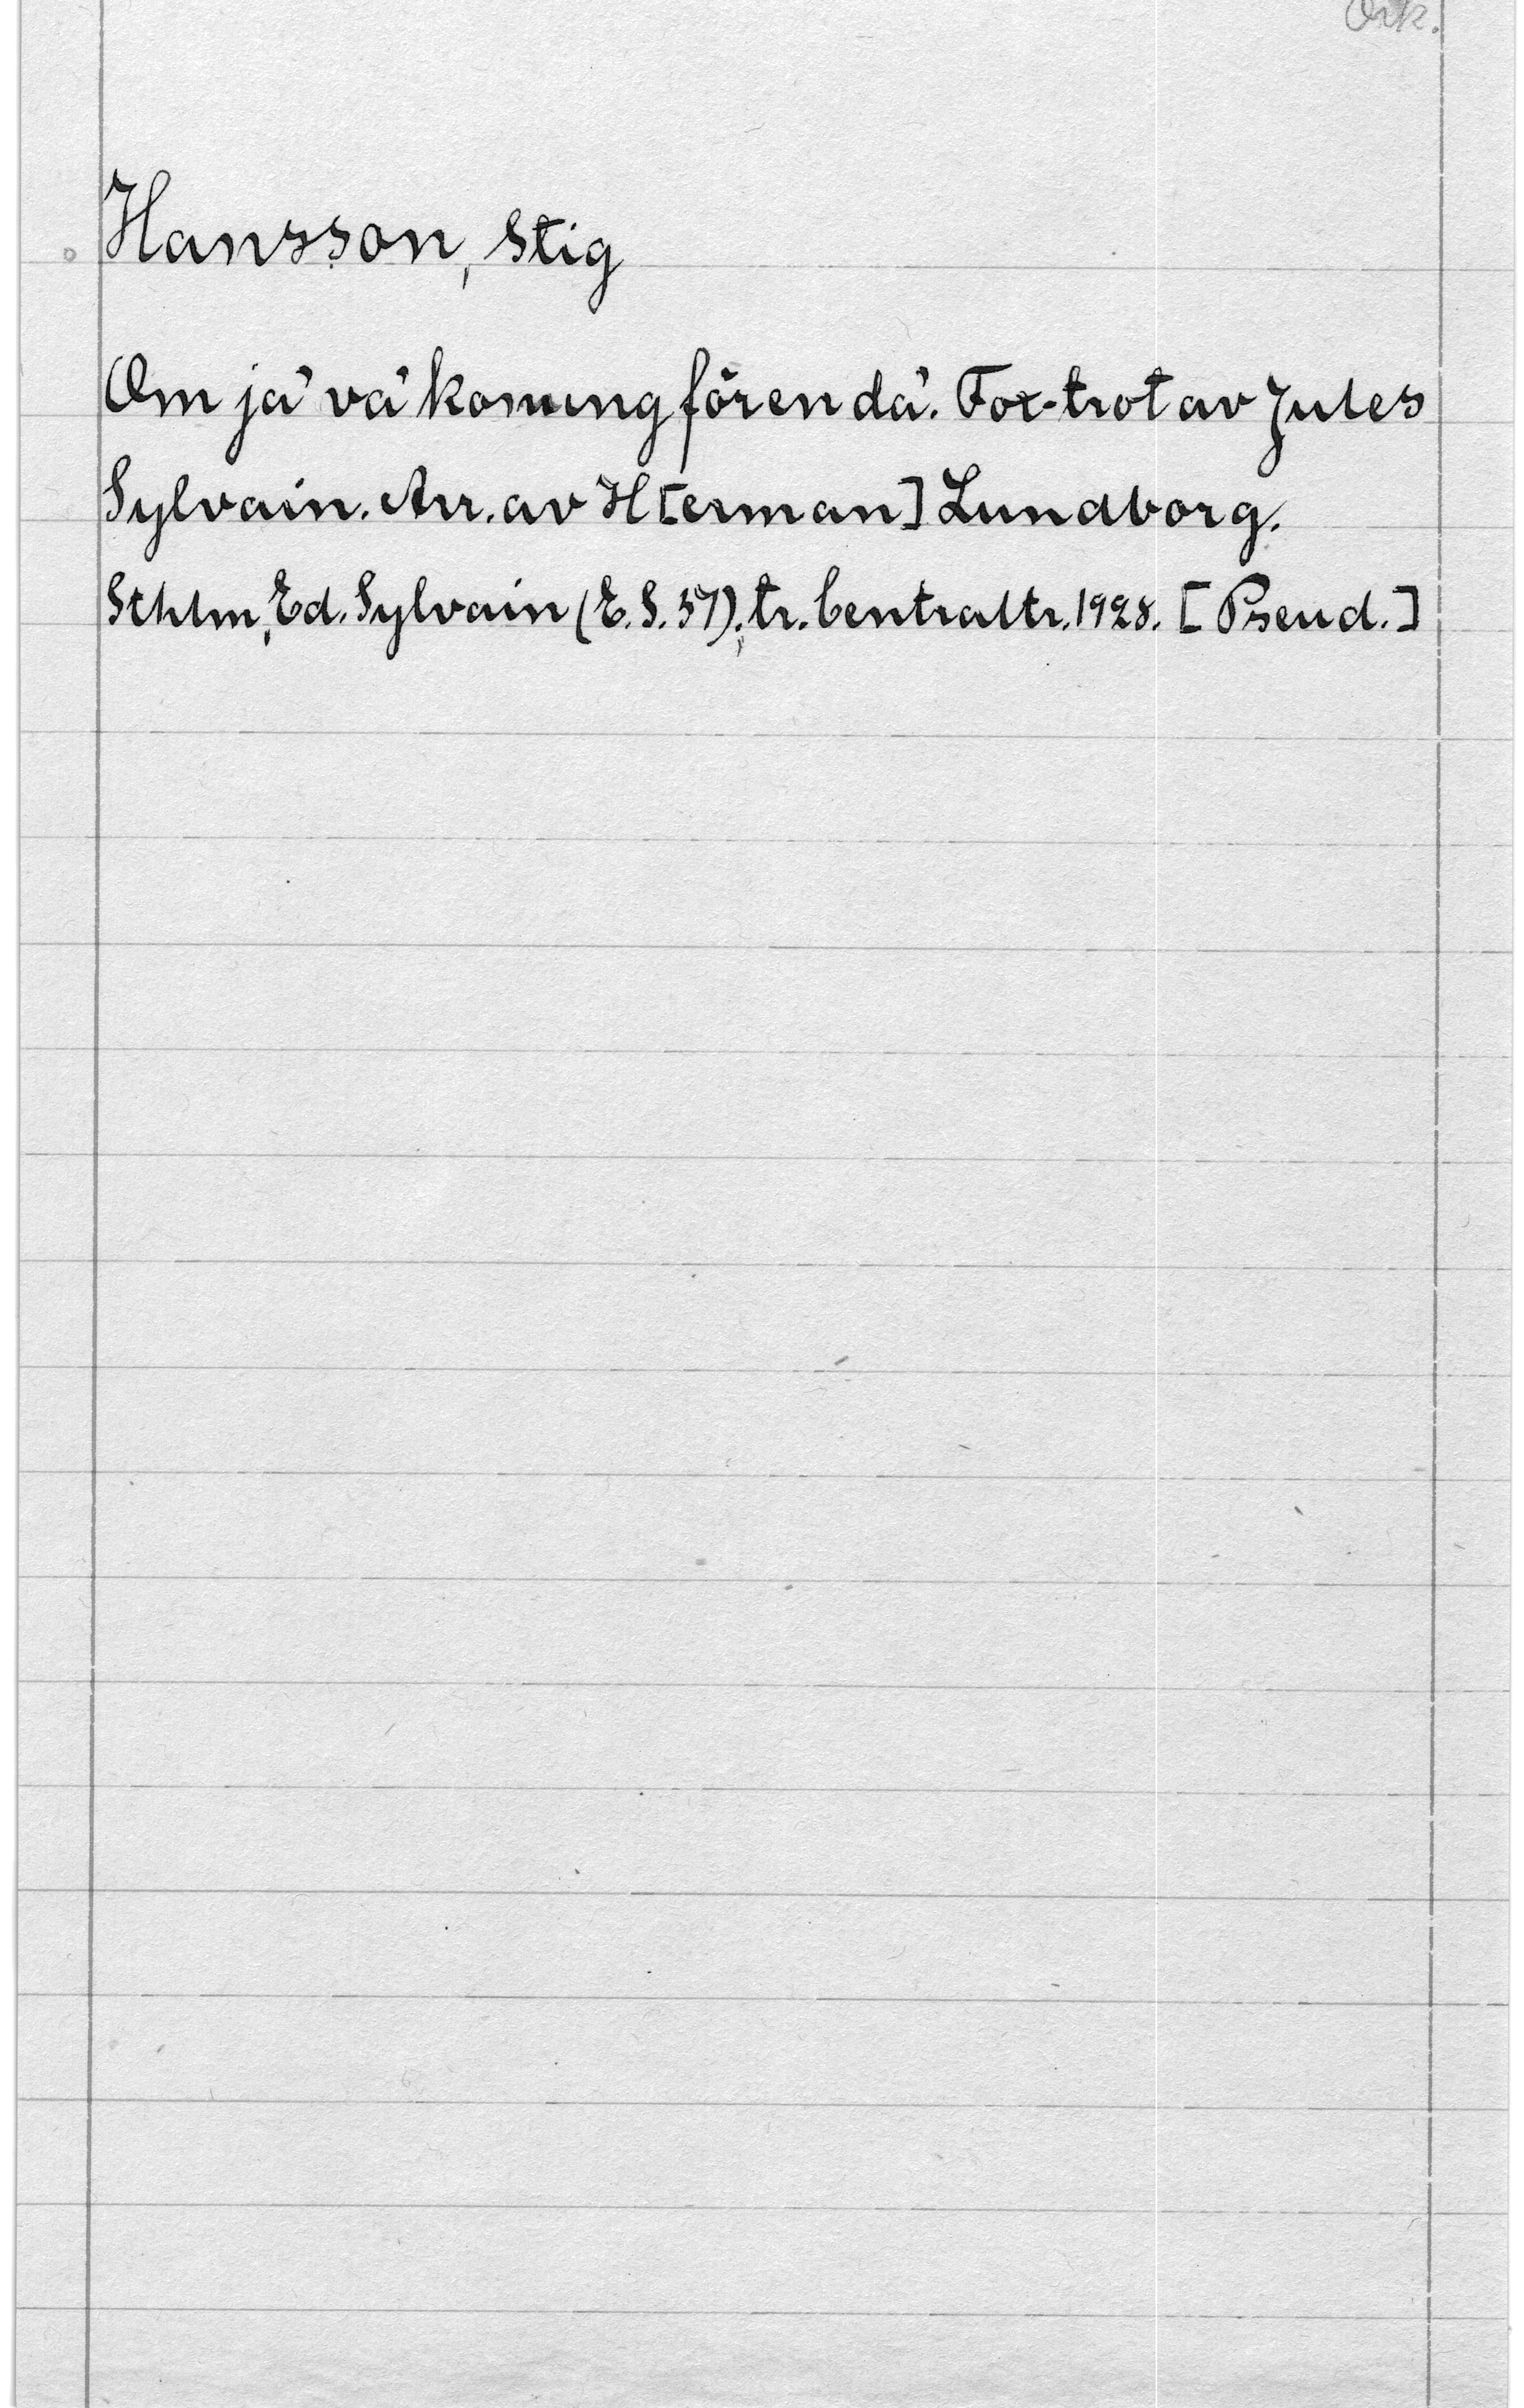 Ork.
Hansson, Stig
Om ja' va' konung för en da'. Fox-trot av Jules
Sylvain. Arr. av H[erman] Lundborg.
Sthlm, Ed. Sylvain (E. S. 57); tr. Centraltr. 1928. [Pseud.]